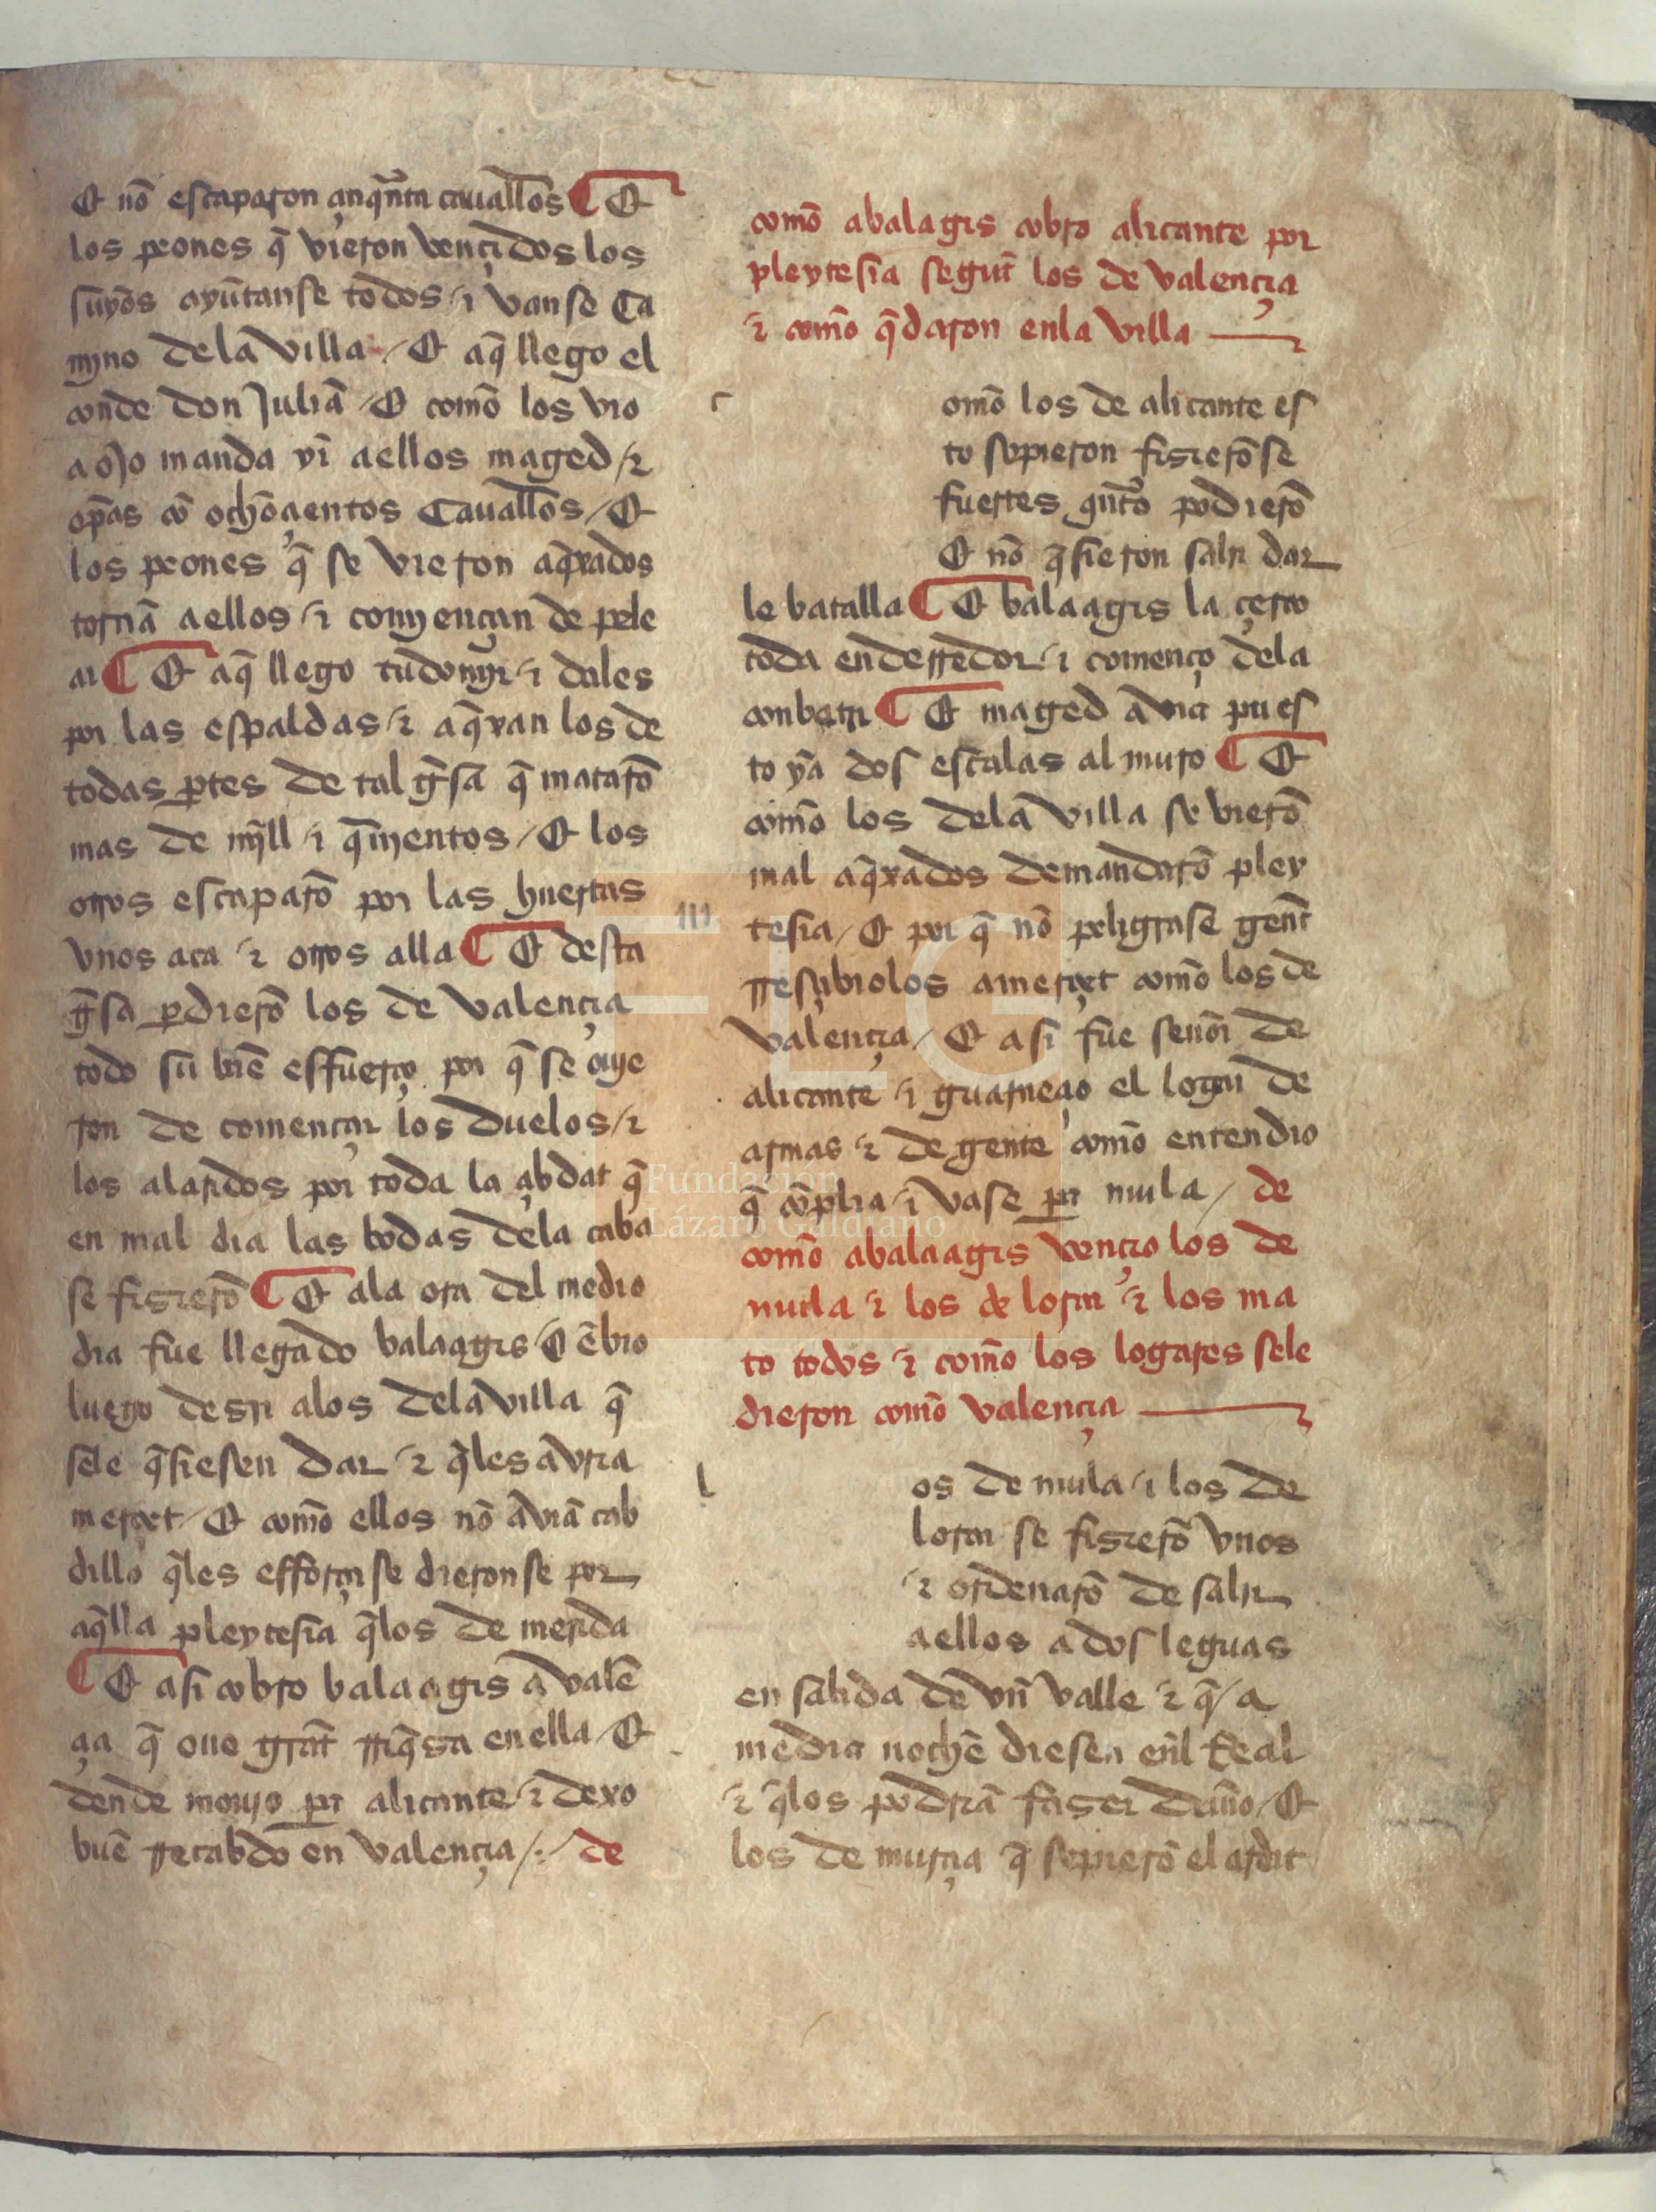 Et nõ escaparon çinq̃nta cauallos ¶ Et
los peones q̃ vieron vençidos los
suyos ayũtanse todos / ⁊ vanse Ca
myno dela villa / Et aq̃ llego el
conde don Juliã / Et comõ los vio
a ojo manda yr̃ aellos maged / ⁊
op̃as cõ ochoçientos Cauallos / Et
los peones q̃ se vieron aq̃xados
tornã aellos / ⁊ comyençan de pele
ar ¶ Et aq̃ llego tudomyr / ⁊ dales
por las espaldas / ⁊ aq̃xan los de
todas ꝑtes de tal g̃sa q̃ matarõ
mas de mỹll / ⁊ q̃inyentos / Et los
otros escaparõ por las huertas
vnos aca ⁊ otros alla ¶ Et desta
g̃sa ꝑdierõ los de valençia
todo su biẽ effuerço por q̃ se ouye
ron de començar los duelos / ⁊
los alaridos por toda la çibdat q̃
en mal dia las bodas dela caba
se fizierõ ¶ Et ala ora del medio
dia fue llegado balaagis / Et ẽbio
luego desir alos dela villa q̃
sele q̃siesen dar / ⁊ q̃les avria
merçet / Et comõ ellos nõ aviã cab
dillo q̃les efforçase dieronse por
aq̃lla pleytesia q̃los de merida
¶ Et asi cobro balaagis a valẽ
çia q̃ ouo grãt rriq̃sa en ella / Et
dende mouyo ꝑa alicante / ⁊ dexo
buẽ rrecabdo en valençia / : / de
comõ abalagis cobro alicante por
pleytesia segũt los de valençia
⁊ comõ q̃daron enla villa
omõ los de alicante es
to sopieron fizierõse
fuertes q̃nto podierõ
Et nõ q̃sieron salir dar
le batalla ¶ Et balaagis la çerco
toda enderredor / ⁊ començo dela
conbatir ¶ Et maged avia pues
to ya dos escalas al muro ¶ Et
comõ los dela villa se vierõ
mal aq̃xados demandarõ pley
tesia / Et por q̃ nõ peligrase gẽnt
rresçibiolos amerçet comõ los de
valençia / Et asi fue señor de
alicante / ⁊ guarneçio el logar de
armas ⁊ de gente comõ entendio
q̃ cõplia / ⁊ vase ꝑa mula / de
comõ abalaagis vençio los de
mula ⁊ los de lorca ⁊ los ma
to todos ⁊ comõ los logares sele
dieron comõ valençia
os de mula / ⁊ los de
lorca se fizierõ vnos
⁊ ordenarõ de salir
aellos a dos leguas
en salida de vñ valle ⁊ q̃ / a
media nochẽ diesen eñl Real
⁊ q̃los podriã faser daño / Et
los de murçia q̃ sopierõ el ardit
Fundación
Lázaro Galdiano